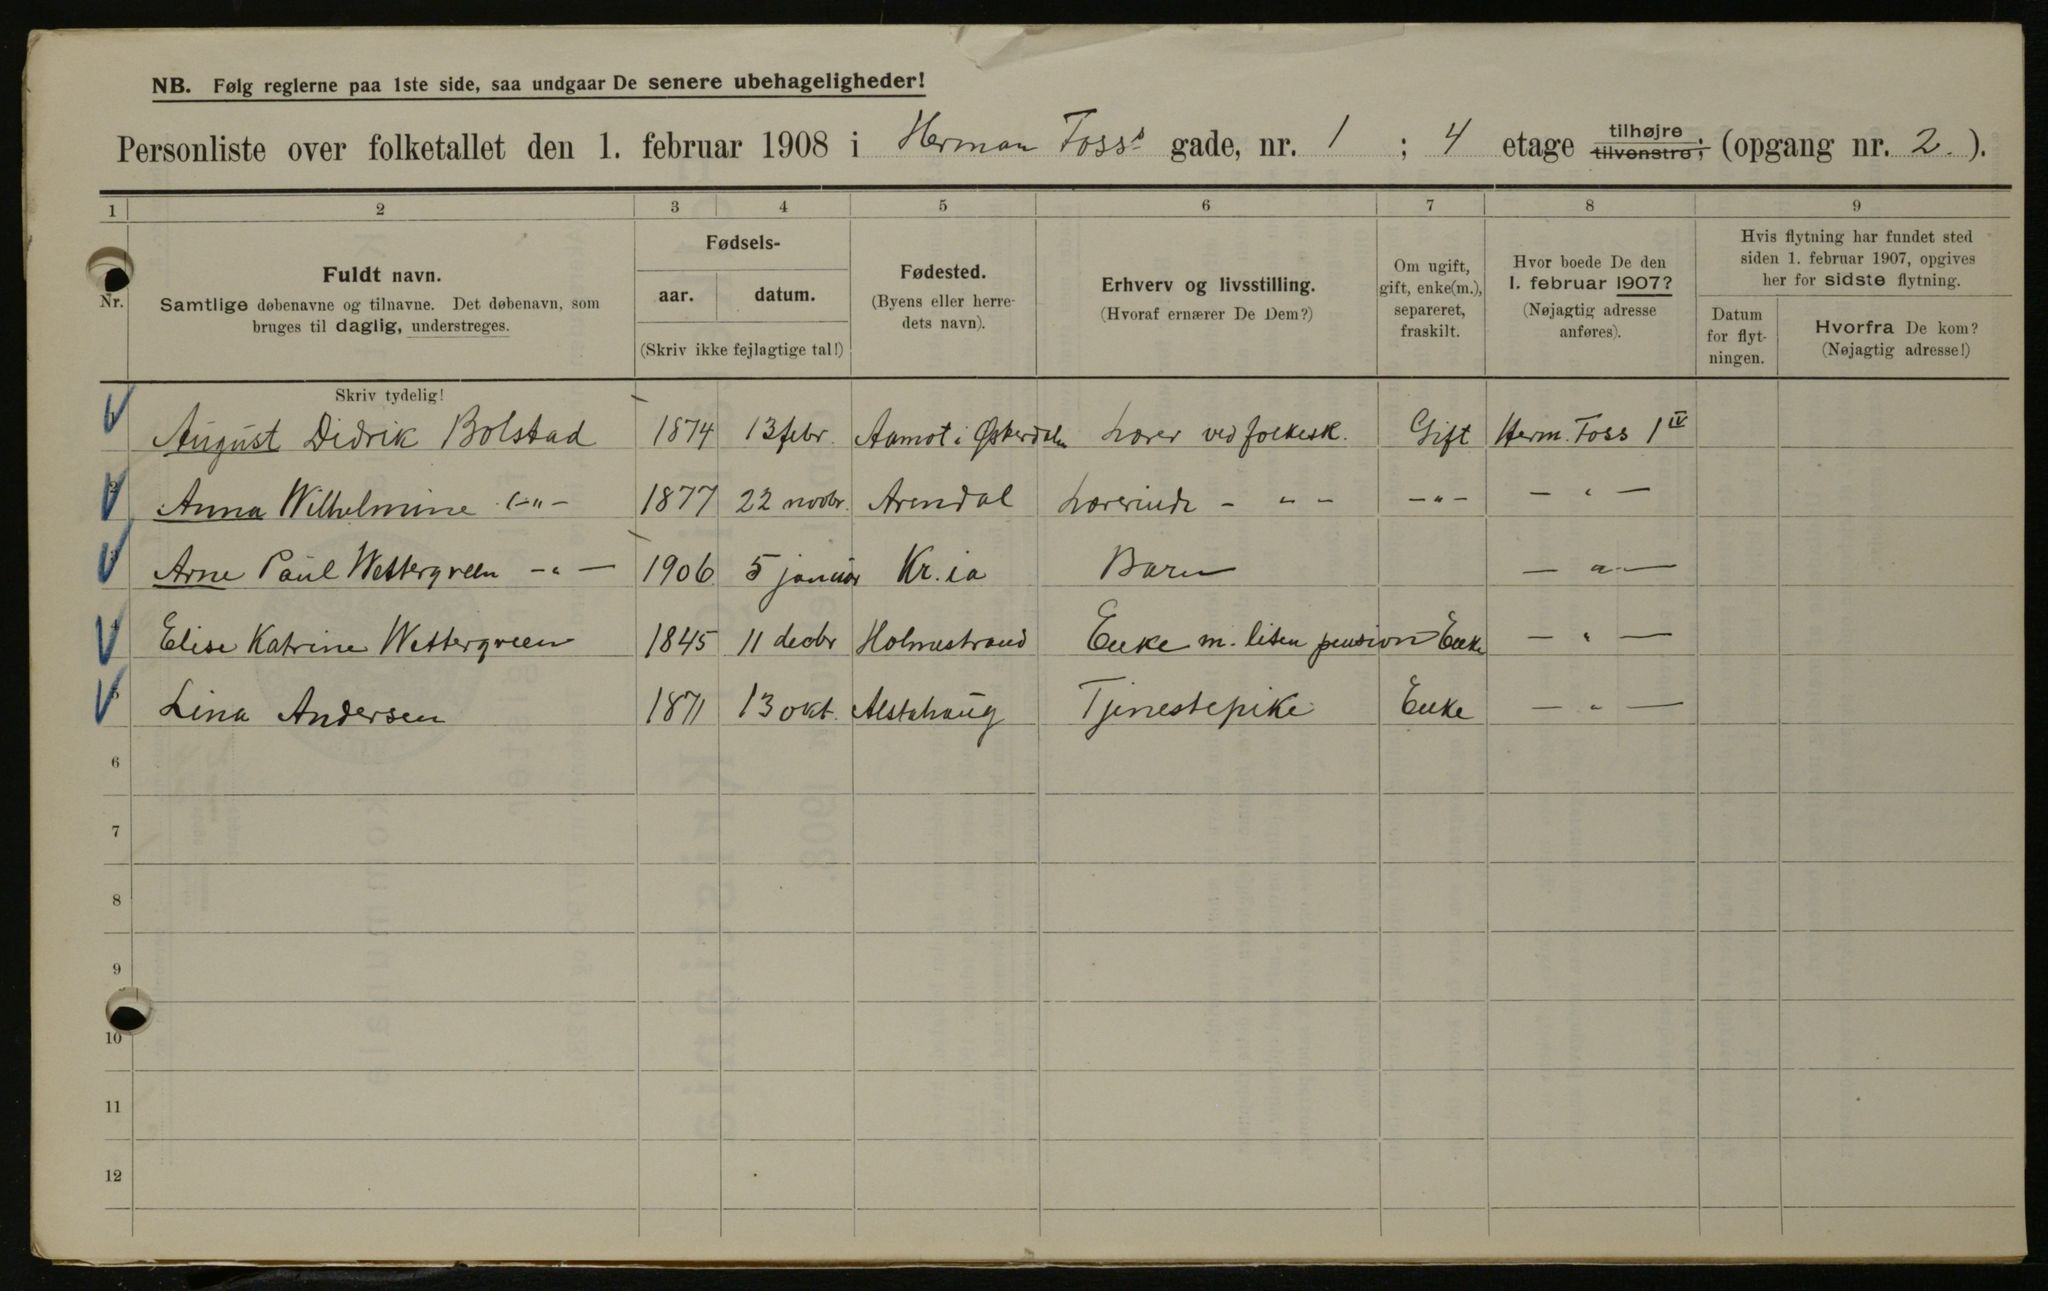 NB. Følg reglerne paa 1ste side, saa undgaar De senere ubehageligheder!
Personliste over folketallet den 1. februar 1908 i Herman Foss's gade, nr. 1 ; 4 etage tilhøjre tilvenstre; (opgang nr. 2.).
1 2 3 4 5 6 7 8 9
Nr.
Fuldt navn.
Samtlige døbenavne og tilnavne. Det døbenavn, som
bruges til daglig, understreges.
Skriv tydelig!
Fødsels-
aar. datum.
(Skriv ikke fejlagtige tal!)
Fødested.
(Byens eller herre-
dets navn).
Erhverv og livsstilling.
(Hvoraf ernærer De Dem?)
Om ugift,
gift, enke(m.),
separeret,
fraskilt.
Hvor boede De den
1. februar 1907?
(Nøjagtig adresse
anføres).
Hvis flytning har fundet sted
siden 1. februar 1907, opgives
her for sidste flytning.
Datum
for flyt-
ningen.
Hvorfra De kom?
(Nøjagtig adresse!)
1 August Didrik Bolstad 1874 13 febr. Aamot i Østerdalen Lærer ved folkesk. Gift Herm. Foss 1 IV
2 Anna Wilhelmine -"- 1877 22 novbr. Arendal Lærerinde - " - -"- - " -
3 Arne Paul Wettergreen - " - 1906 5 januar Kr.ia Barn - " -
4 Elise Katrine Wettergreen 1845 11 decbr Holmestrand Enke m. liten pension Enke - " -
5 Lina Andersen 1871 13 okt. Alstahaug Tjenestepike Enke - " -
6
7
8
9
10
11
12